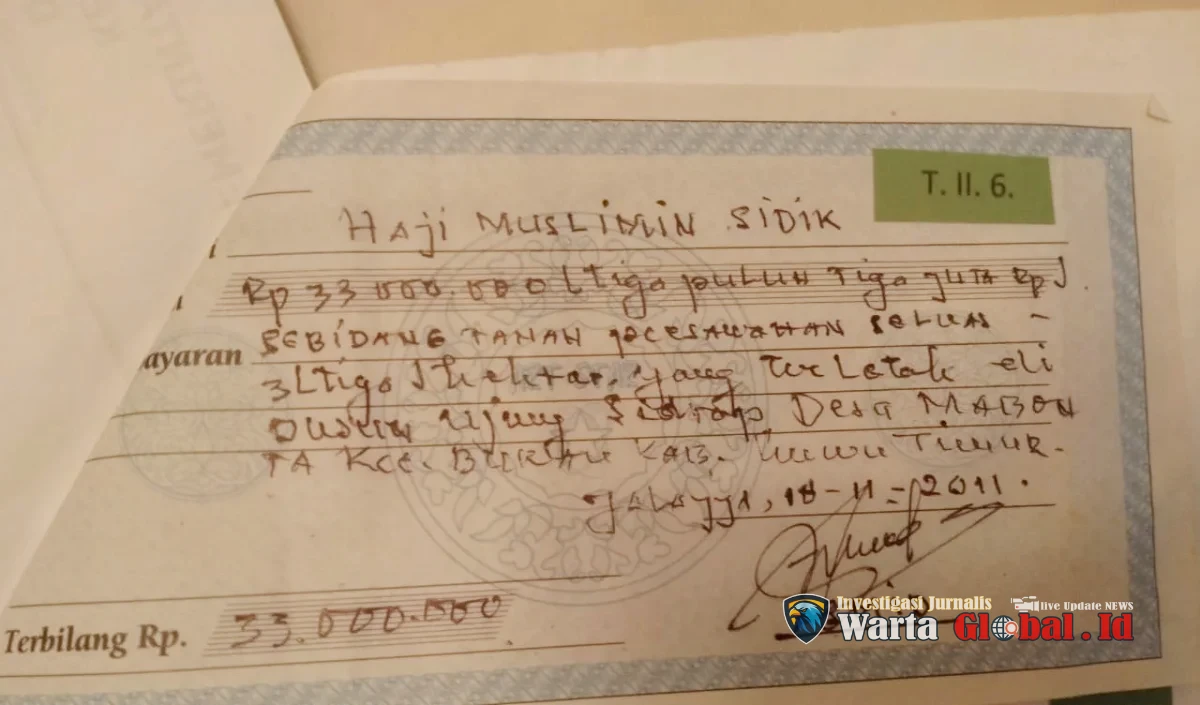 T. II. 6.
HAji MUSLiMiN SiDiK
Rp 33 000.000 (tigo puLUH Tigo JUTA Rp)
SEBiDANG TANAH peCESAWAHAN SELUAS -
ayaran
3 (tigo) hektar, yang terLetak di
Dusun Ujung Sidrap, Desa MABON
TA Kec. BURAU KAB. LuWu TiMUR.
18-11-2011.
Terbilang Rp. 33.000.000
Investigasi Jurnalis
live Update NEWS
Warta Global.Id